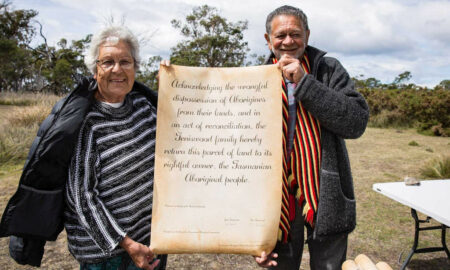 Acknowledging the wrongful
dispossession of Aborigines
from their lands, and in
an act of reconciliation, the
Teniswood family hereby
return this parcel of land to its
rightful owner, the Tasmanian
Aboriginal people.